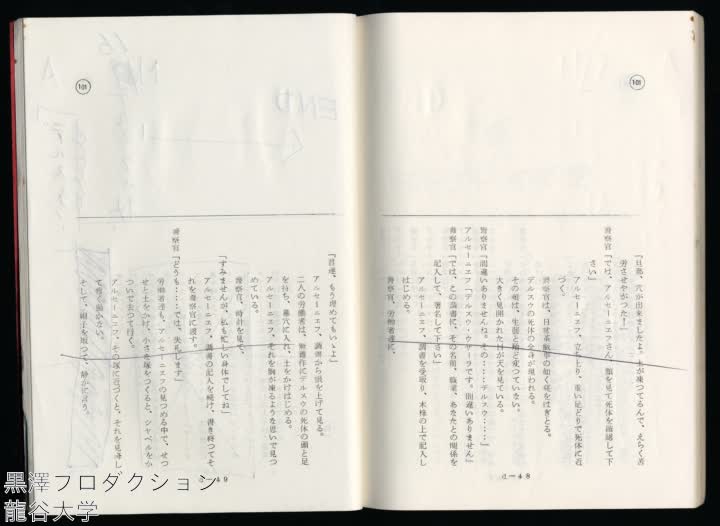 101
「旦那、穴が出来ましたよ。土が凍つてるんで、えらく苦
労させやがつた！」
警察官「では、アルセーニエフさん、顔を見て死体を確認して下
さい」
アルセーニエフ、立ち上り、重い足どりで死体に近
づく。
警察官は、日常茶飯事の如く莚をはぎとる。
デルスウの死体の全身が現われる。
その顔は、生前と殆ど変つていない。
大きく見開かれた目が天を見ている。
警察官「間違いありませんね。その‥‥デルスウ‥‥」
アルセーニエフ「デルスウ・ウザーラです。間違いありません」
警察官「では、この調書に、その名前、職業、あなたとの関係を
記入して、署名して下さい」
アルセーニエフ、調書を受取り、木株の上で記入し
はじめる。
警察官、労働者達に、
d－48
101
END
「君達、もう埋めてもいゝよ」
アルセーニエフ、調書から頭を上げて見る。
二人の労働者は、無造作にデルスウの死体の頭と足
を持ち、墓穴に入れ、土をかけはじめる。
アルセーニエフ、それを胸が凍るような思いで見つ
めている。
警察官、時計を見て、
「すみませんが、私も忙しい身体でしてね」
アルセーニエフ、調書の記入を続け、書き終つてそ
れを警察官に渡す。
警察官「どうも‥‥では、失礼します」
労働者達も、アルセーニエフの見つめる中で、せつ
せと土をかけ、小さな塚をつくると、シャベルをか
ついで去つて行く。
アルセーニエフ、その塚に近づくと、それを見下し
て暫く動かない。
そして、帽子を取つて、静かに言う。
d－49
黒澤プロダクション
龍谷大学